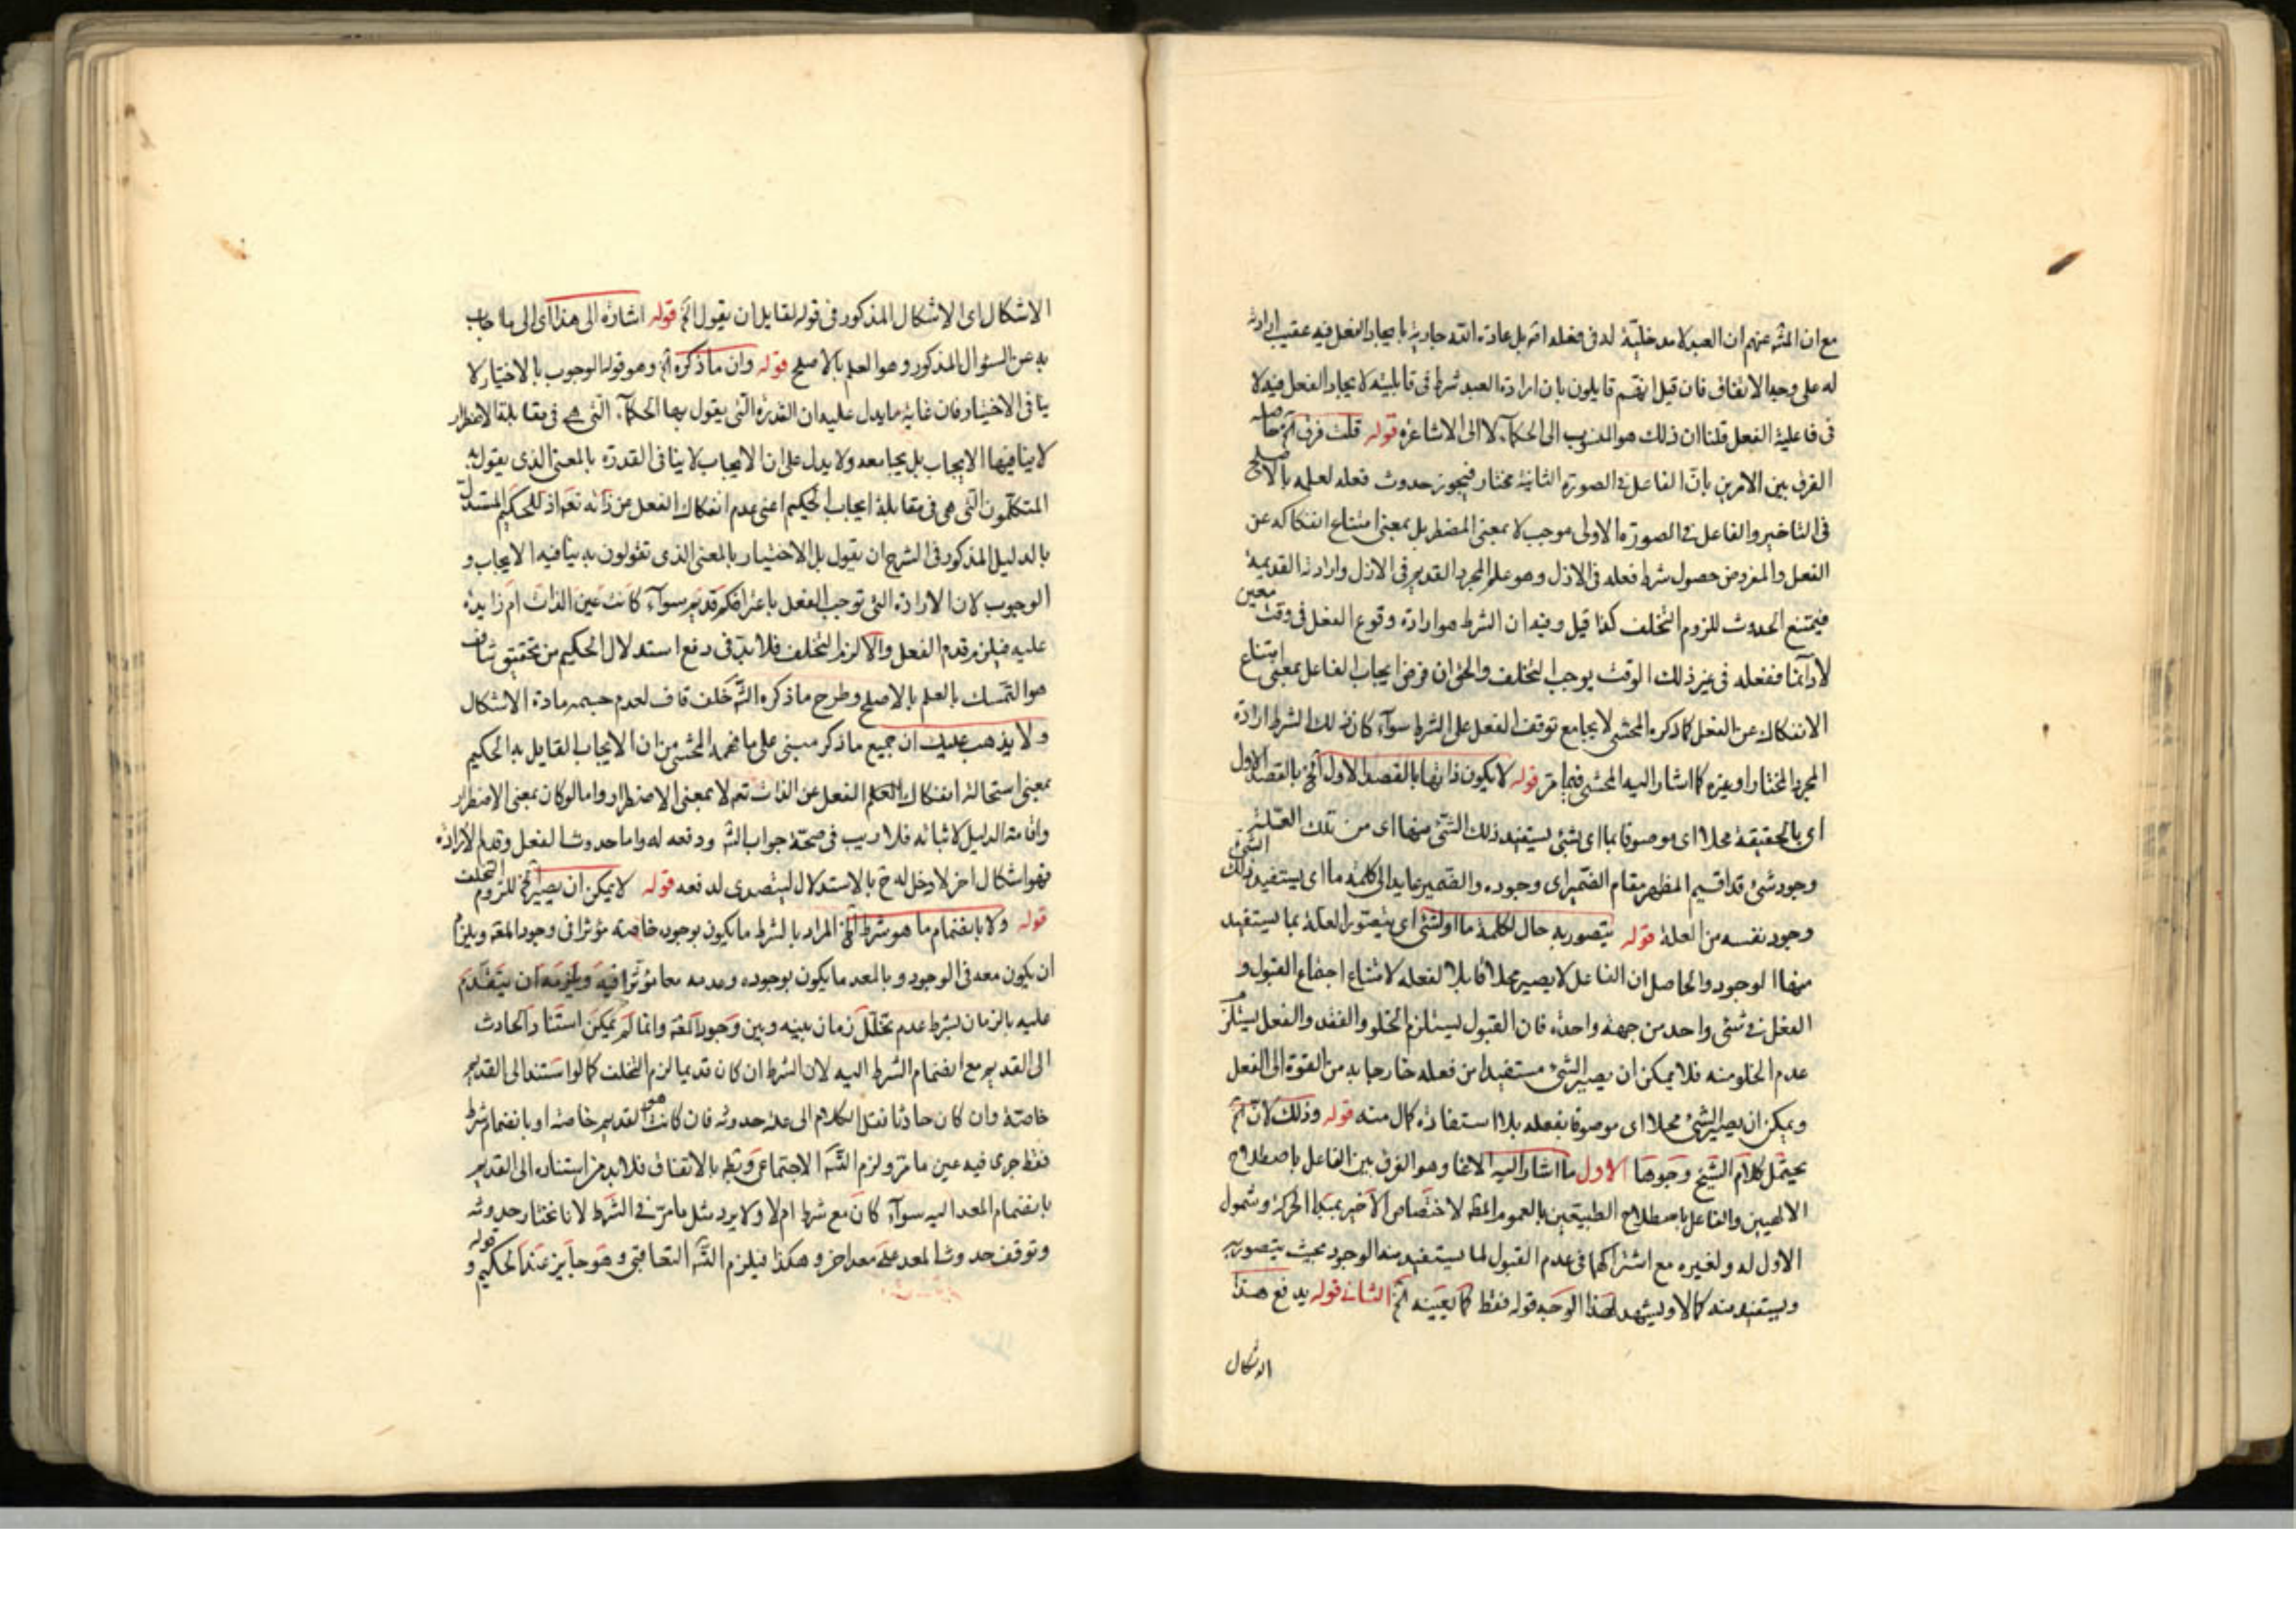 مع ان المش عنهم ان العبد لا مدخلية له فى فعله اصه بل عادة الله جارية بايجاد الفعل فيه عقيب ارادته
له على وجه الاتفاق فان قيل انهم قايلون بان ارادة العبد شرط فى قابليته لايجاد الفعل فيه لا
فى فاعلية الفعل قلنا ان ذلك هو المنسوب الى الحكمآء لا الى الاشاعره قوله قلت فرق الخ حاصله
الفرق بين الامرين بان الفاعل فى الصورة الثانية مختار فيجوز حدوث فعله لعلمه بالاصلح
فى التاخير والفاعل فى الصورة الاولى موجب لا بمعنى المضطر بل بمعنى امتناع انفكاكه عن
الفعل والمفروض حصول شرط فعله فى الازل وهو علم المجرد القديم فى الازل وارادته القديمة
فيمتنع الحدوث للزوم التخلف كذا قيل وفيه ان الشرط هو ارادة وقوع الفعل فى وقت معين
لا دآئما ففعله فى غير ذلك الوقت يوجب التخلف والحق ان فرض ايجاب الفاعل بمعنى امتناع
الانفكاك عن الفعل كما ذكره المحشى لا يجامع توقف الفعل على الشرط سوآء كان ذلك الشرط ارادة
المجرد المختار او غيره كما اشار اليه المحشى فيما مر قوله لا يكون ذاتها بالقصد الاول الخ بالقصد الاول
اى بالحقيقة محلا اى موصوفا بما اى بشئ يستفيد ذلك الشئ منها اى من تلك العلة
وجود شئ قد اقيم المظهر مقام الضمير اى وجوده والضمير عايد الى كلمة ما اى يستفيد ذلك الشئ
وجود نفسه من العلة قوله يتصور به حال لكلمة ما او لشئ اى يتصور العلة بما يستفيد
منها الوجود والحاصل ان الفاعل لا يصير محلا قابلا لفعله لامتناع اجتماع القبول و
الفعل فى شئ واحد من جهة واحدة فان القبول يستلزم الخلو والفقد والفعل يستلزم
عدم الخلو منه فلا يمكن ان يصير الشئ مستفيدا من فعله خارجا به من القوة الى الفعل
ويمكن ان يصير الشئ محلا اى موصوفا بفعله بلا استفادة كمال منه قوله وذلك لان الخ
يحتمل كلام الشيخ وجوها الاول ما اشار اليه الاغا وهو الفرق بين الفاعل باصطلاح
الالهيين والفاعل باصطلاح الطبيعيين بالعموم المط لاختصاص الاخير بمبدا الحركة وشمول
الاول له ولغيره مع اشتراكهما فى عدم القبول لما يستفيد منه الوجود بحيث يتصور به
ويستفيد منه كمالا ويشهد لهذا الوجه قوله فقط كما يعينه الخ الثانى قوله يدفع هذا
الاشكال
الاشكال اى الاشكال المذكور فى قوله لقايل ان يقول الخ قوله اشارة الى هذا اى الى ما اجاب
به عن السؤال المذكور وهو العلم بالاصلح قوله وان ما ذكره الخ وهو قوله الوجوب بالاختيار لا
ينافى الاختيار فان غاية ما يدل عليه ان القدرة التى يقول بها الحكمآء التى هى فى مقابلة الاضطرار
لا ينافيها الايجاب بل يجامعه ولا يدل على ان الايجاب لا ينافى القدرة بالمعنى الذى يقول به
المتكلمون التى هى فى مقابلة ايجاب الحكيم اعنى عدم انفكاك الفعل عن ذاته تعه اذ للحكيم المستدل
بالدليل المذكور فى الشرح ان يقول بل الاختيار بالمعنى الذى تقولون به ينافيه الايجاب و
الوجوب لان الارادة التى توجب الفعل باعترافكم قديم سوآء كانت عين الذات ام زايدة
عليه فيلزم قدم الفعل والا لزم التخلف فلا بد فى دفع استدلال الحكيم من تحقيق شاف
هو التمسك بالعلم بالاصلح وطرح ما ذكره الش خلف قاف لعدم حسمه مادة الاشكال
ولا يذهب عليك ان جميع ما ذكر مبنى على ما فهمه المحشى من ان الايجاب القايل به الحكيم
بمعنى استحالة انفكاك العلم الفعل عن الذات تعه لا بمعنى الاضطرار واما لو كان بمعنى الاضطرار
واقامة الدليل لاثباته فلا ريب فى صحة جواب الش ودفعه له واما حدوث الفعل وقدم الارادة
فهو اشكال اخر لا دخل له ح بالاستدلال ليتصدى لدفعه قوله لا يمكن ان يصير الخ للزوم التخلف
قوله ولا بانضمام ما هو شرط الخ المراد بالشرط ما يكون بوجوده خاصة مؤثرا فى وجود المعه ويلزم
ان يكون معه فى الوجود وبالمعد ما يكون بوجوده وعدمه معا مؤثرا فيه ويلزمه ان يتقدم
عليه بالزمان بشرط عدم تخلل زمان بينه وبين وجود المعه وانما لم يمكن استناد الحادث
الى القديم مع انضمام الشرط اليه لان الشرط ان كان قديما لزم التخلف كما لو استند الى القديم
خاصة وان كان حادثا فنقل الكلام الى علة حدوثه فان كانت هو القديم خاصة او بانضمام شرط
فقط جرى فيه عين ما مر ولزم التسه الاجتماعى وبط بالاتفاق فلا بد من استناده الى القديم
بانضمام المعد اليه سوآء كان مع شرط ام لا ولا يرد مثل ما مر فى الشرط لانا نختار حدوثه
وتوقف حدوث المعد على معد اخر وهكذا فيلزم التسه التعاقبى وهو جايز عند الحكيم و
قوله